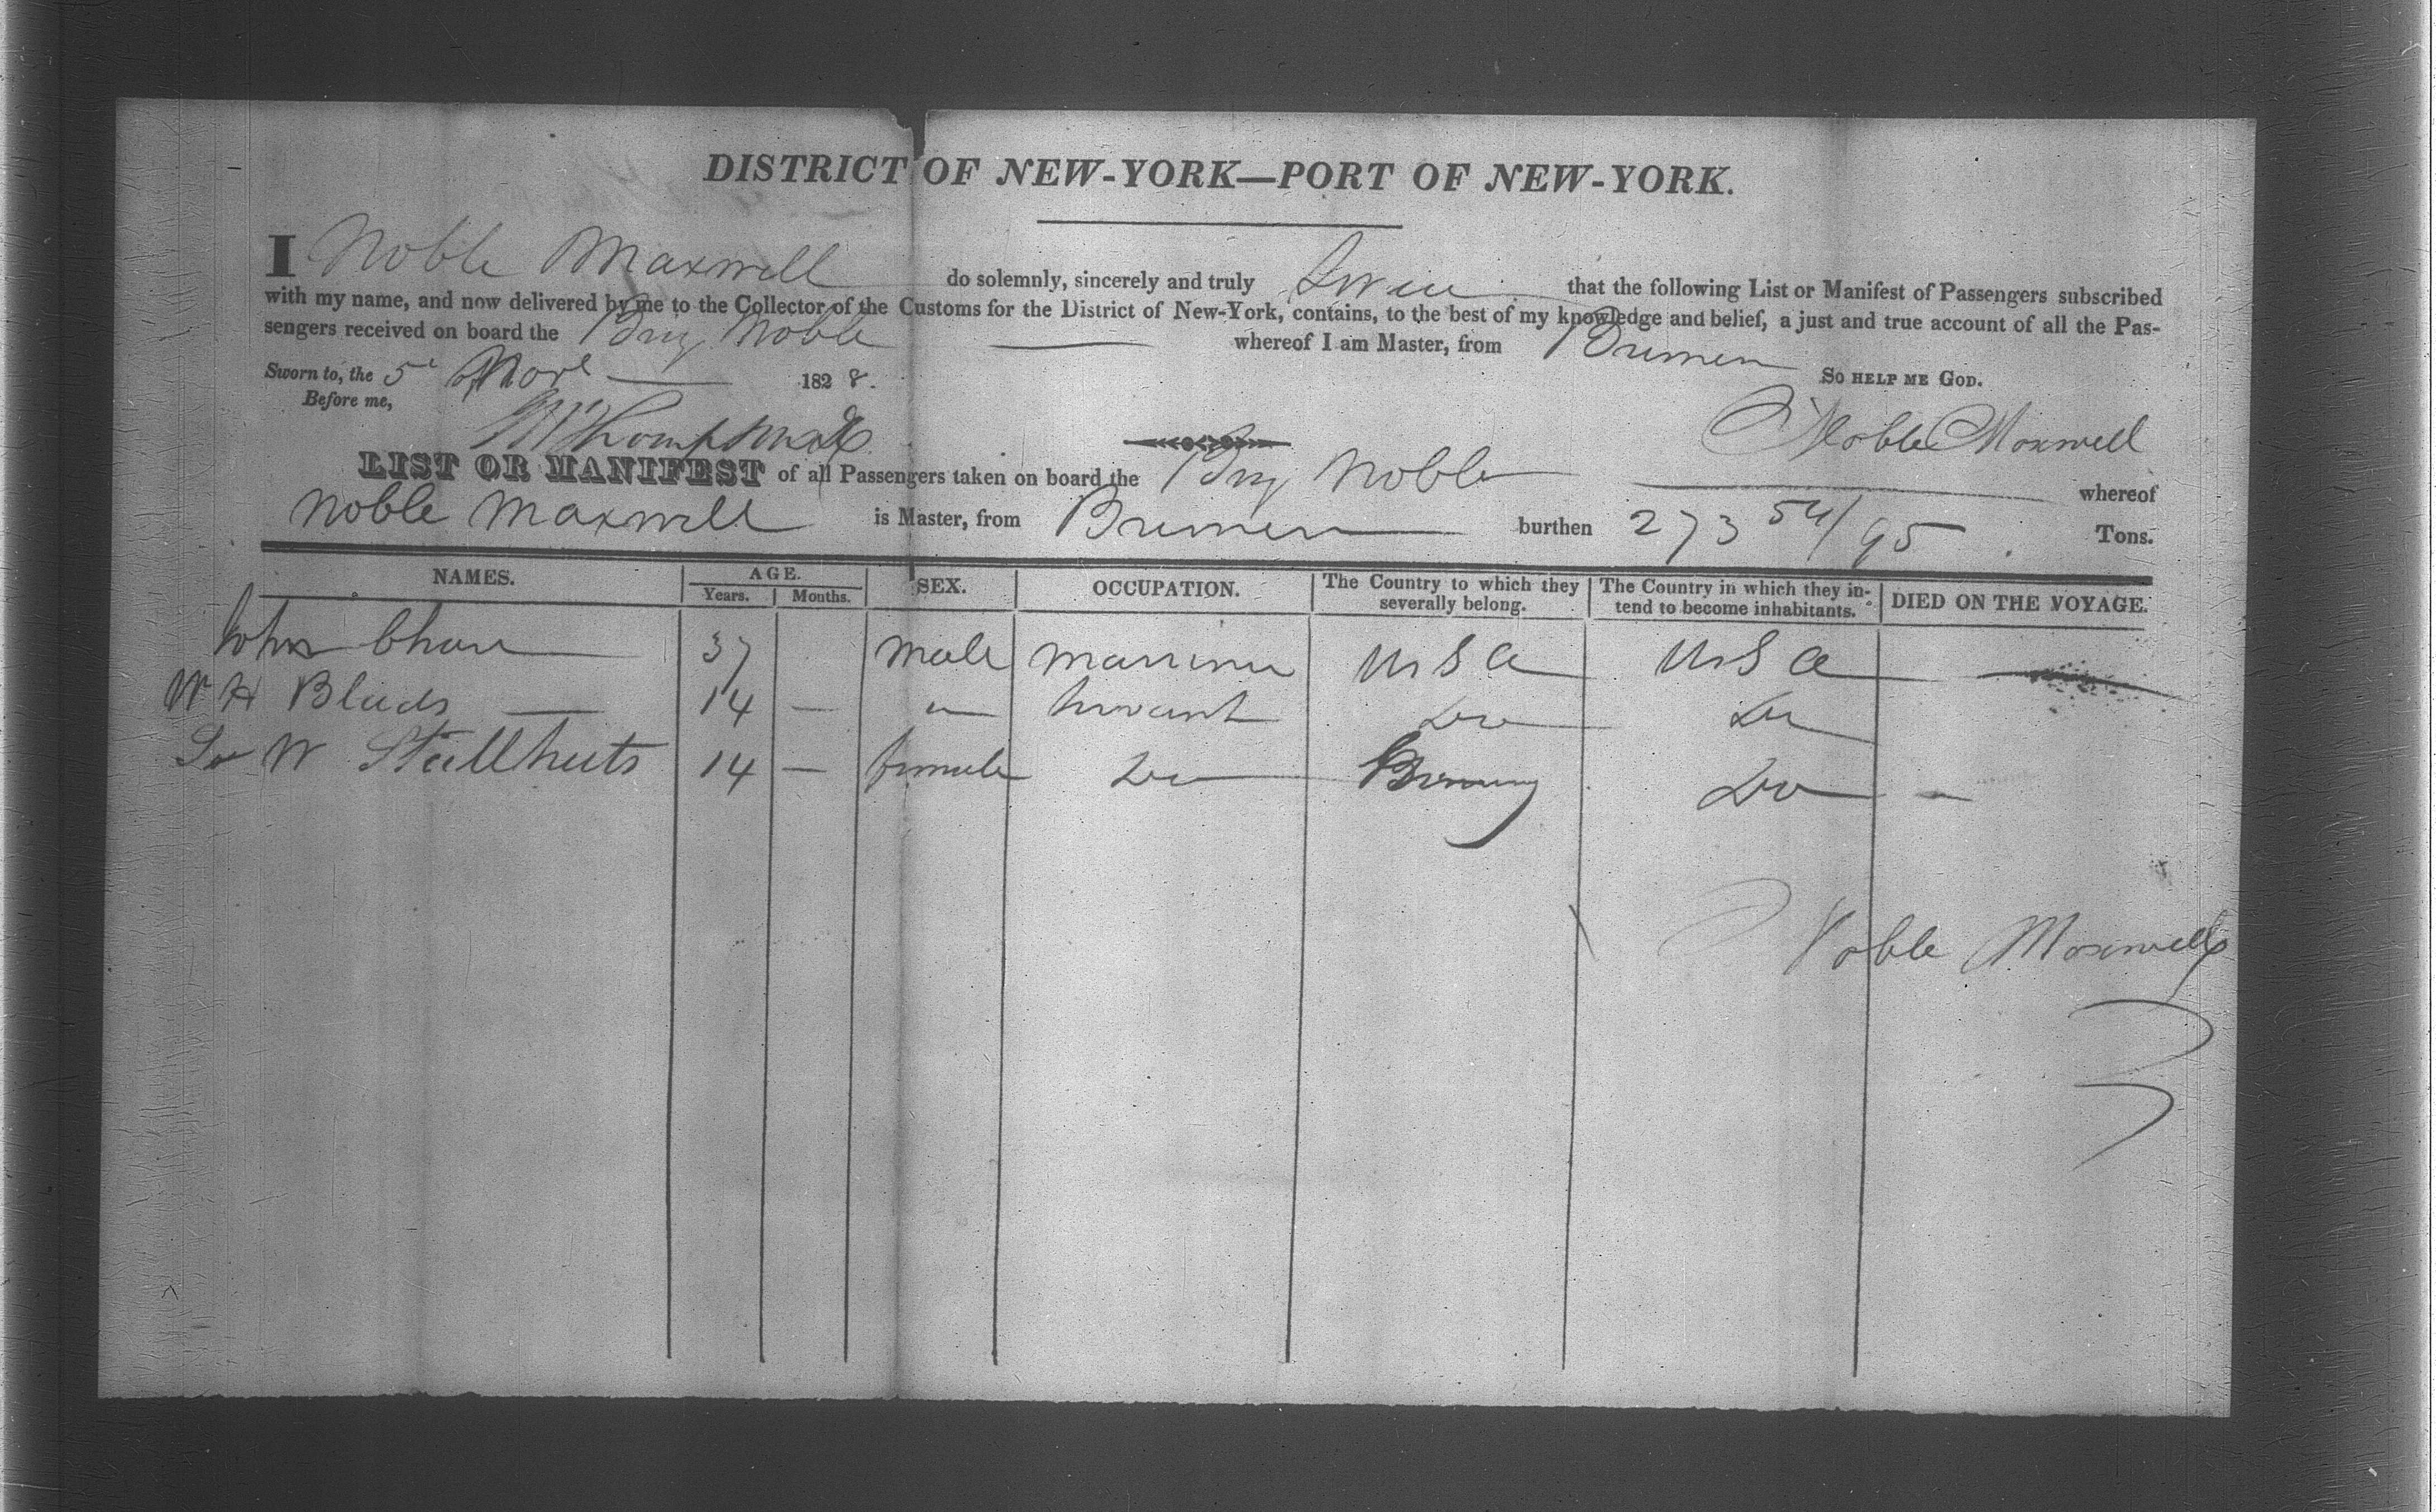 DISTRICT OF NEW-YORK—PORT OF NEW-YORK.
I Noble Maxwell do solemnly, sincerely and truly Swear that the following List or Manifest of Passengers subscribed
with my name, and now delivered by me to the Collector of the Customs for the District of New-York, contains, to the best of my knowledge and belief, a just and true account of all the Pas-
sengers received on board the Brig Noble whereof I am Master, from Bremen
Sworn to, the 5 1828. SO HELP ME GOD.
Before me, Noble Maxwell
LIST OR MANIFEST of all Passengers taken on board the Brig Noble whereof
Noble Maxwell is Master, from Bremen burthen 273 54/95 Tons.
NAMES. AGE. SEX. OCCUPATION. The Country to which they severally belong. The Country in which they in-tend to become inhabitants. DIED ON THE VOYAGE.
Years. Months.
John 37 male marriner U S A U S A
W H 14 — " Servant Do Do
W 14 — female Do Do —
Noble Maxwell